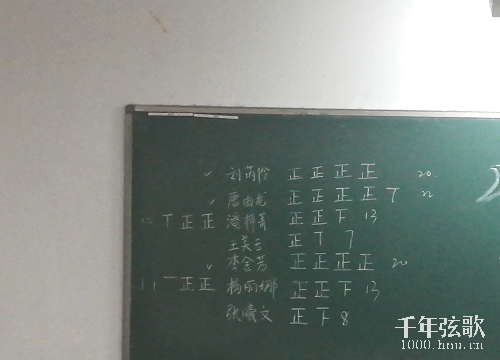 刘芮伶 正正正正 20
唐由龙 正正正正丅 22
12 丅正正 潘梓菁 正正下 13
王美云 正丅 7
李会芳 正正正正 20
11 一正正 杨丽娜 正正下 13
张曦文 正下 8
千年弦歌
1000.hnu.cn